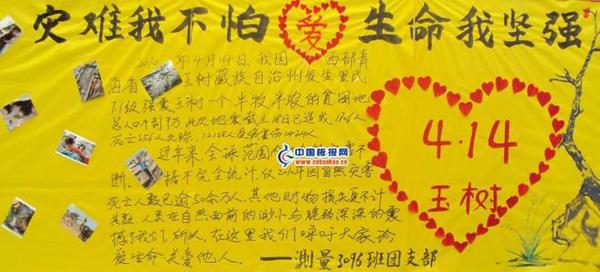 灾难我不怕 爱 生命我坚强
2010年4月14日,我国西部青
海省 玉树藏族自治州发生里氏
7.1级强震玉树一个半牧半农的贫困地
总人口不到 万 此次地震截止18日已造成
死亡 人失踪,
近年来,全球范围 不
断. 据不完全统计,仅 年因自然灾害
死亡人数已逾50余万人,其他财物损失更不计
其数 人类在自然面前的渺小与脆弱深深的震
撼了我们,所以,在这里我们呼吁大家珍
爱生命 关爱他人.
——测量3096班团支部
4.14
玉树
中国板报网
www.cnbanbao.cn